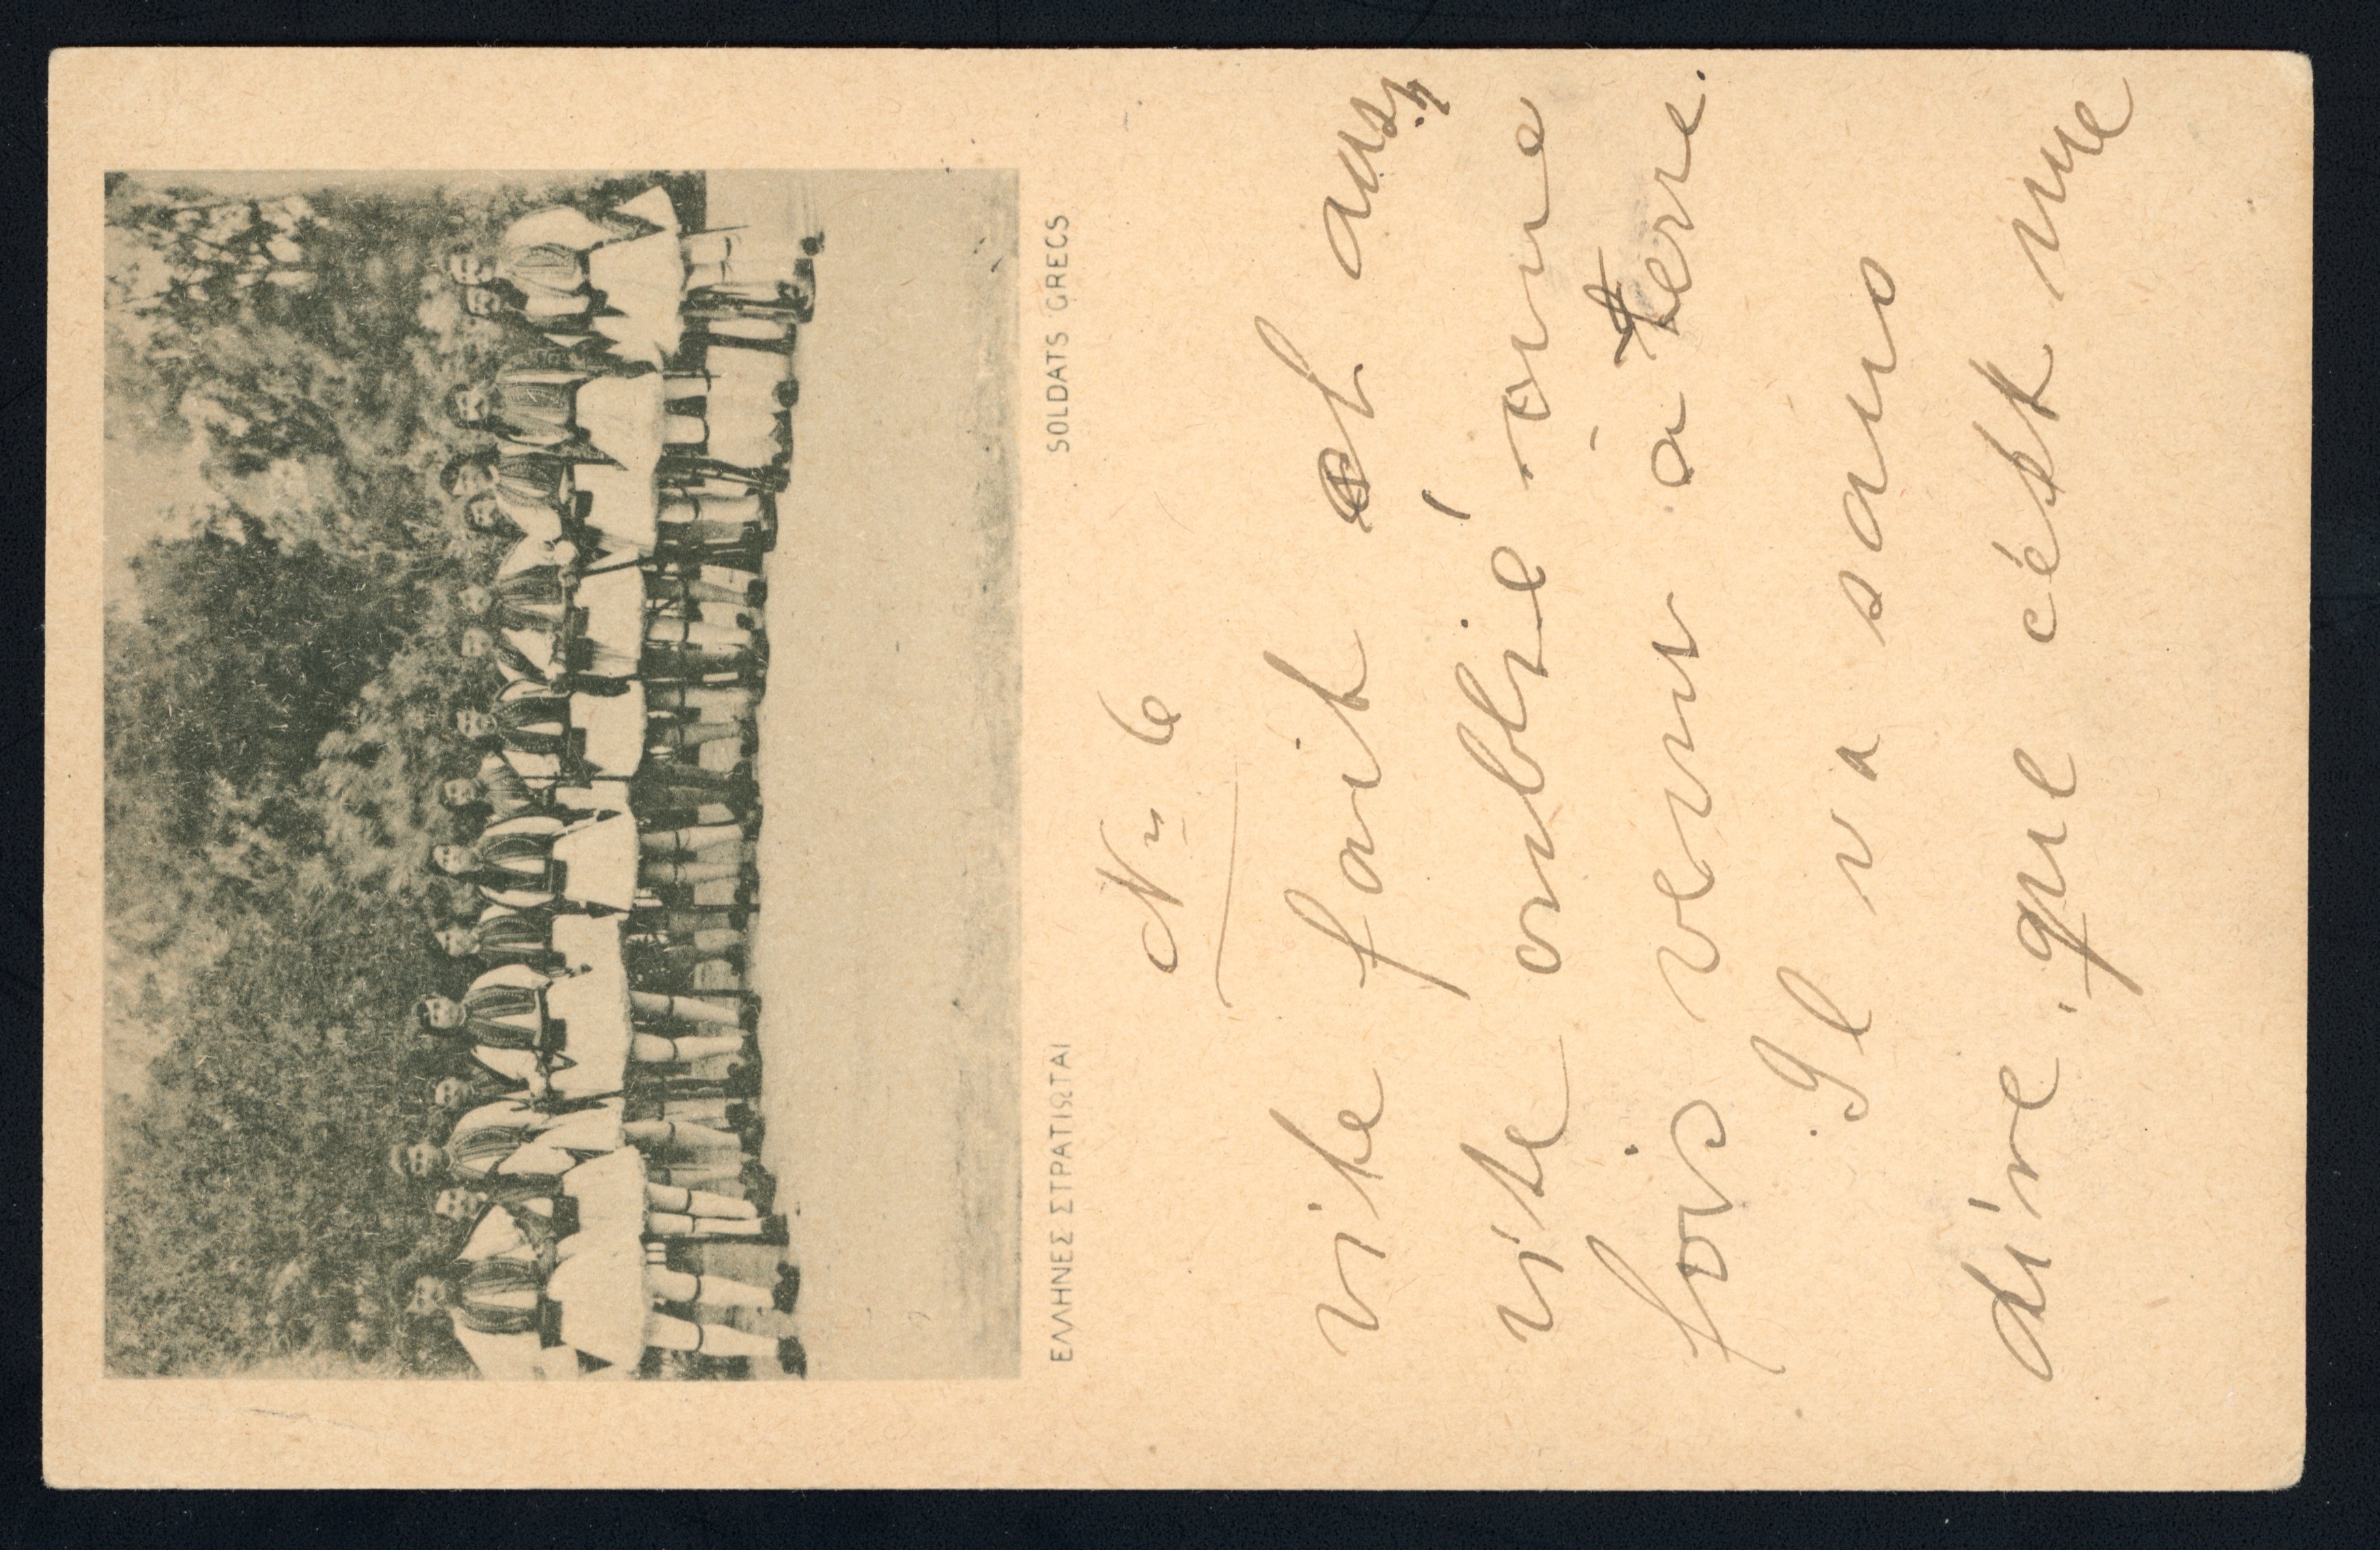 ΕΛΛΗΝΕΣ ΣΤΡΑΤΙΩΤΑΙ SOLDATS GRECS
Nr 6
vite fait et aussi
vite oublié o une
fois venu à terre.
Il va sans
dire que cést une